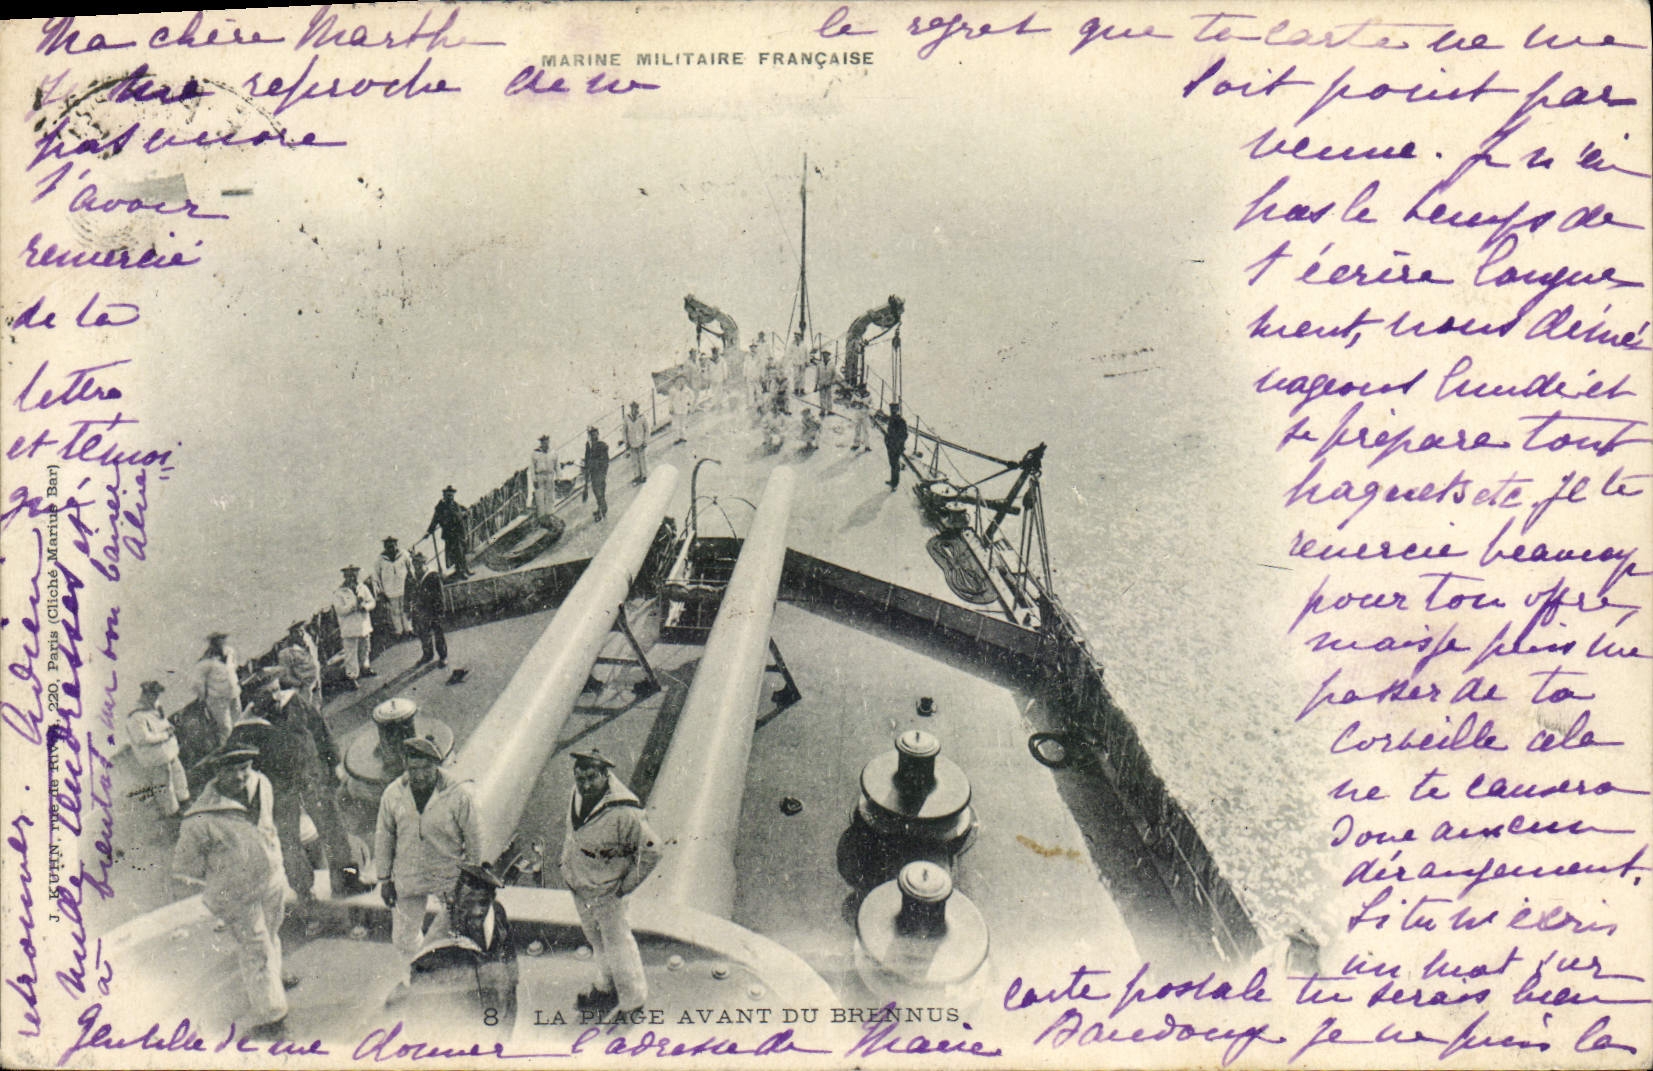 MARINE MILITAIRE FRANÇAISE
Ma chère Marthe
Je me reproche de ne
pas encore
t'avoir
remercié
de ta
lettre
et témoi
gr
le regret que ta carte ne me
soit point par
venue. Je n'ai
pas le temps de
t'écrire longue
ment, nous démé
nageons lundi et
se prépare tout
paquets etc. Je te
remercie beaucoup
pour ton offre,
mais je puis me
passer de ta
corbeille cela
ne te causera
donc aucun
dérangement.
Si tu m'écris
un mot sur
carte postale tu serais bien
gentille de me donner l'adresse de Marie Je ne puis la
retrouver. Adieu
Mille tendresses et
à bientôt un bon baiser
Aline
J. KUHN, rue de Rivoli, 220, Paris (Cliché Marius Bar)
8 LA PLAGE AVANT DU BRENNUS